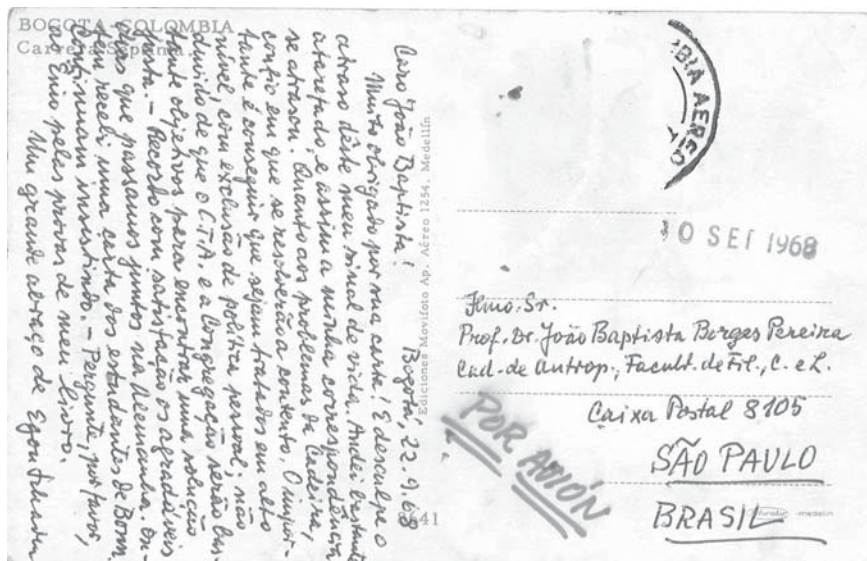 BOGOTA-COLOMBIA
Carrera Séptima
Bogotá, 22.9.68
Caro João Baptista!
Muito obrigado por sua carta! E desculpe o
atraso dêste meu sinal de vida. Andei bastante
atarefado, e assim a minha correspondência
se atrasou. Quanto aos problemas da Cadeira,
confio em que se resolverão a contento. O impor-
tante é conseguir que sejam tratados em alto
nível, com exclusão de política pessoal; não
duvido de que o C.T.A. e a Congregação serão bas-
tante objetivos para encontrar uma solução
justa. – Recordo com satisfação os agradáveis
dias que passamos juntos na Alemanha. On-
tem recebi uma carta dos estudantes de Bonn.
Continuam insistindo. – Pergunte, por favor,
ao Enio pelas provas de meu livro.
Um grande abraço de Egon Schaden
Ediciones Movifoto Ap. Aéreo 1254, Medellín
41
BIA AEREO
10 SET 1968
Ilmo. Sr.
Prof. Dr. João Baptista Borges Pereira
Cad. de Antrop., Facult. de Fil., C. e L.
Caixa Postal 8105
SÃO PAULO
BRASIL
POR AVIÓN
medellín